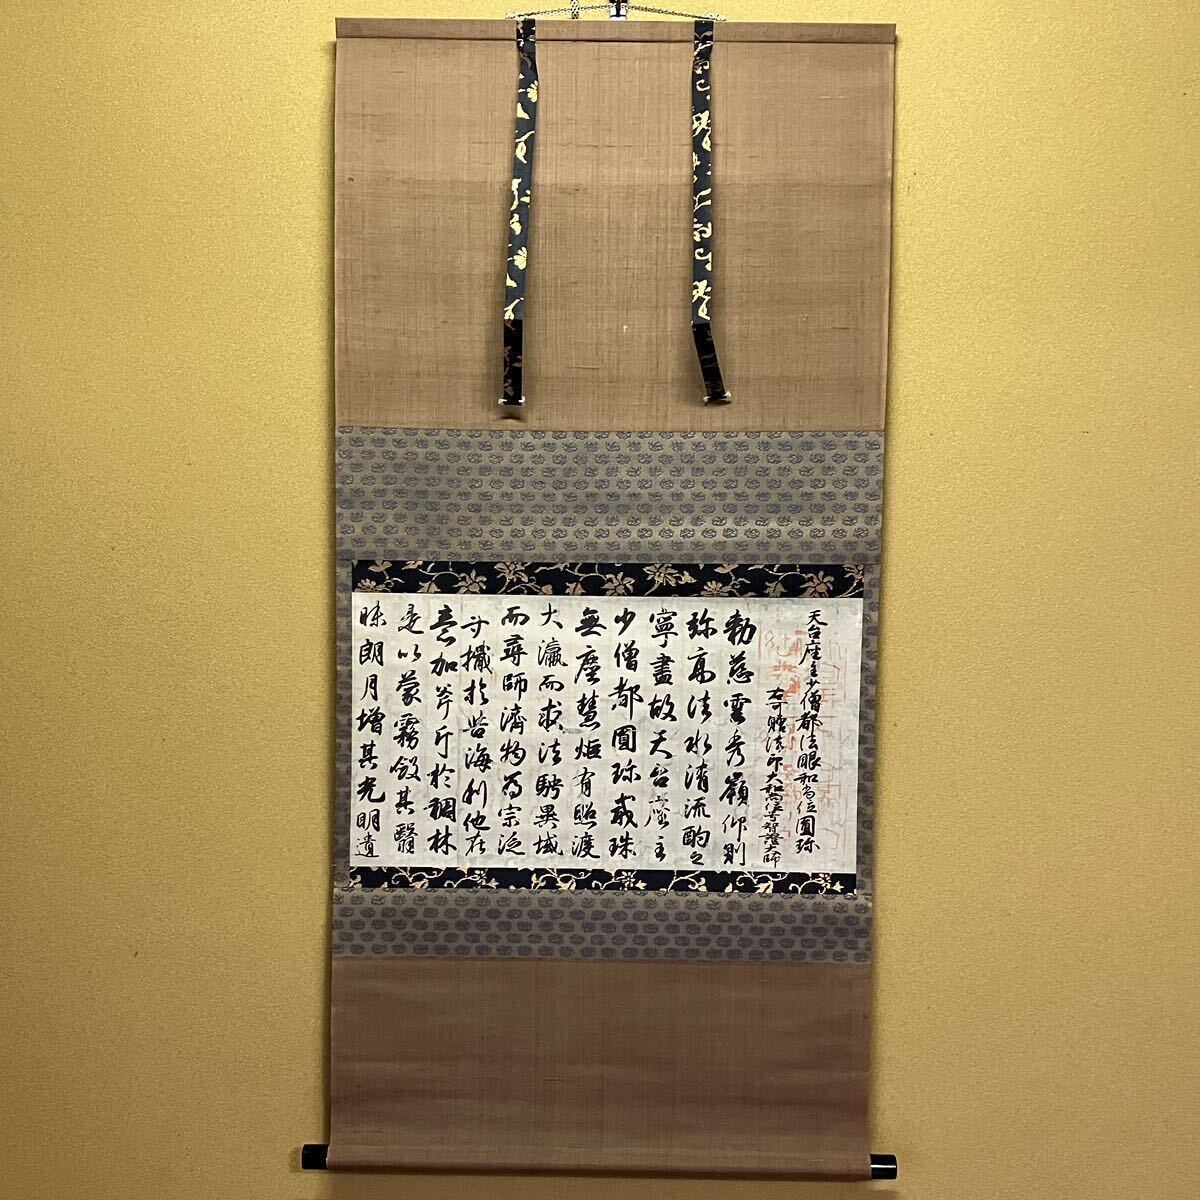 天台座主少僧都法眼和尚位圓珍
右可贈法印大和尚位号智證大師
勅慈雲秀嶺仰則
弥高法水清流酌之
寧盡故天台座主
少僧都圓珍戒珠
無塵慧炬有照渡
大瀛而求法騁異域
而尋師濟物為宗泛
於苦海利他在
意加斧斤於稠林
是以蒙霧斂其翳
昧朗月增其光明遺